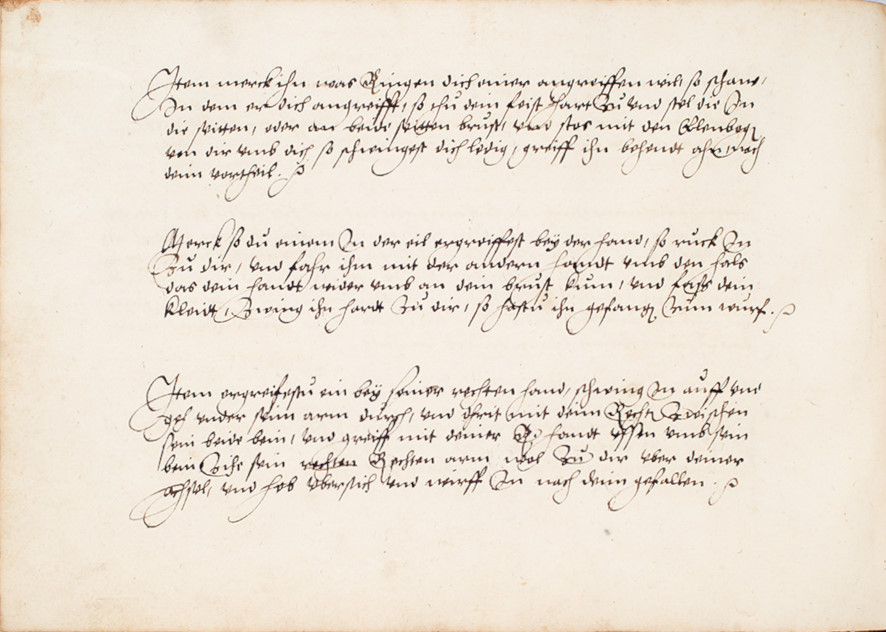 Item merck ihn was Ringen dich einer angreiffen will, so schaw,
In dem er dich angreifft, so thu dein feist hart Zu vnd stos die In
die seitten, oder an beide seitten brust, vnd stos mit den Elenbog
von dir vmb dich so schwingest dich ledig, greiff ihn behendt ahn, nach
deim vortheil.
Merck so du einem In der eil ergreiffest bey der hand, so ruck In
Zu dir, vnd fahr ihm mit der andern handt vmb den hals
das dein handt wider vmb an dein brust kum, vnd fass dein
kleidt, Zwing ihn hardt Zu dir, so hastu ihn gefang Zum wurf.
Item ergreifestu ein bey seiner rechten hand, schwing In auff vnd
geh vnder seim arm durch, vnd dhrit mit deim Recht Zwischen
sein beide bein, vnd greiff mit deiner handt vssen vmb sein
bein Zihe sein rechten Rechten arm wol Zu dir vber deiner
achsel, vnd heb vbersich vnd wirff In nach deim gefallen.